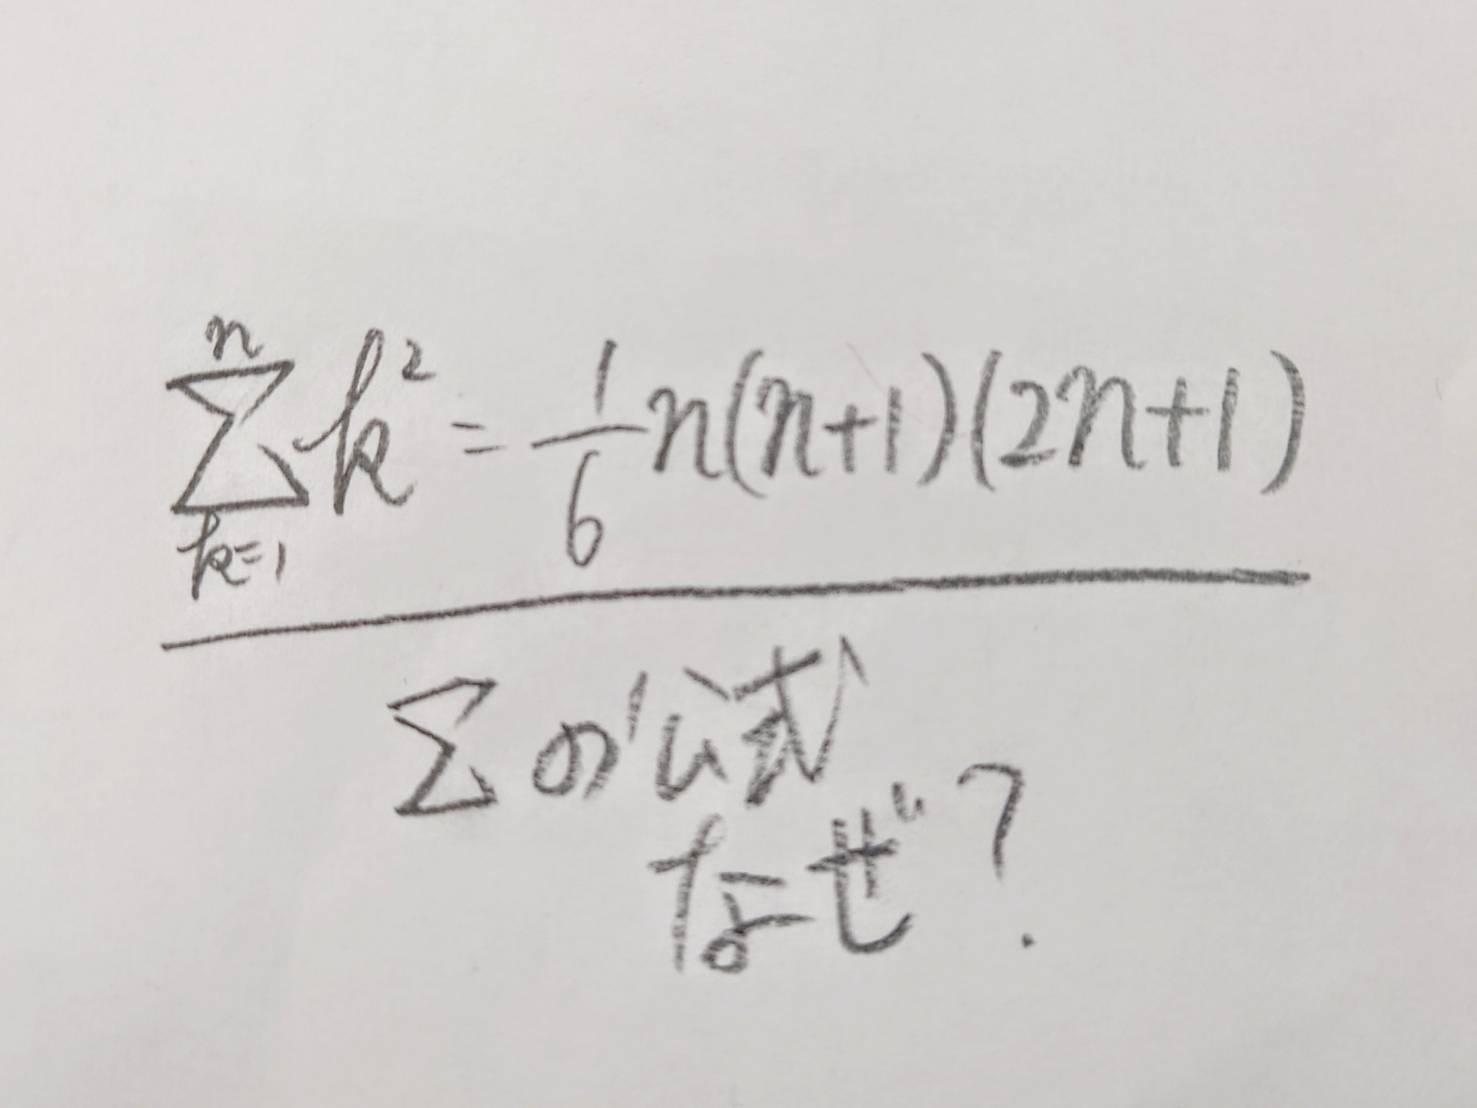 \sum_{k=1}^{n} k^2 = \frac{1}{6}n(n+1)(2n+1)
Σの公式
なぜ?